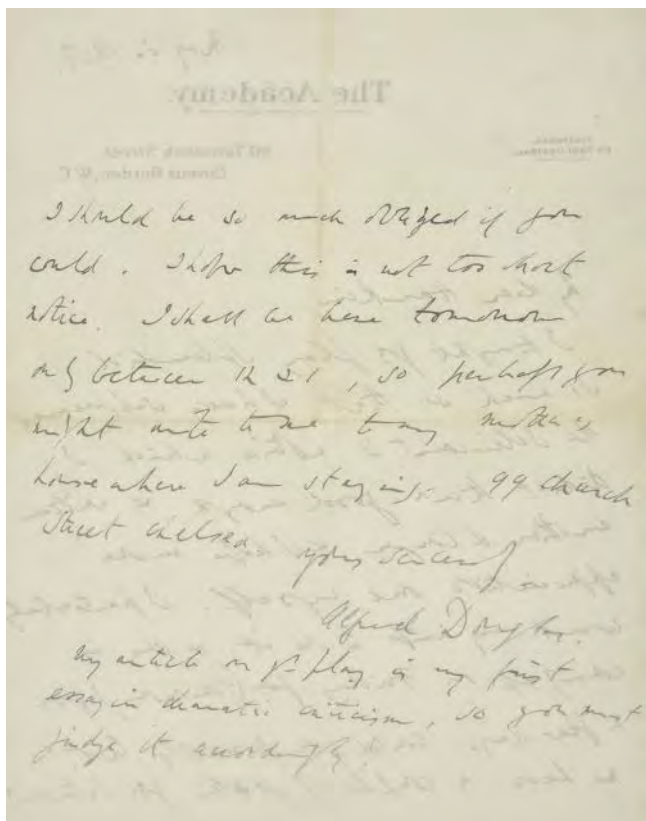 I should be so much obliged if you
could. I hope this is not too short
notice. I shall be here tomorrow
only between 12 & 1, so perhaps you
might write to me to my mother's
house where I am staying. 99 Church
Street Chelsea
yours sincerely
Alfred Douglas.
My article on yr play is my first
essay in dramatic criticism, so you must
judge it accordingly
The Academy